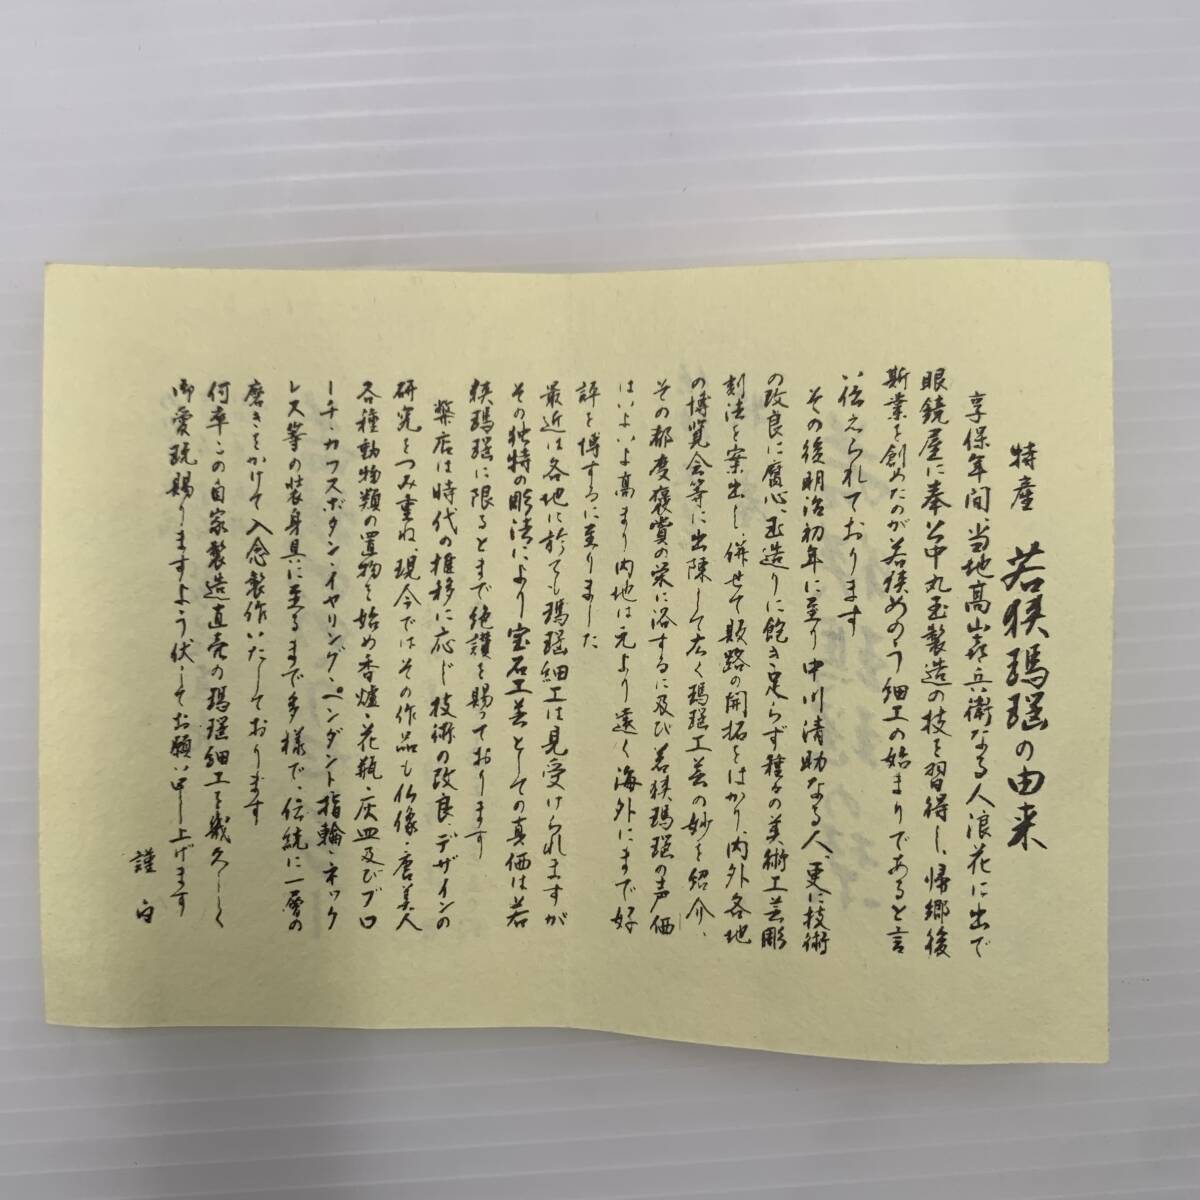 特産 若狭瑪瑙の由来
享保年間、当地高山喜兵衛なる人浪花に出で
眼鏡屋に奉公中丸玉製造の技を習得し、帰郷後
斯業を創めたのが若狭めのう細工の始まりであると言
い伝えられております
その後明治初年に至り中川清助なる人、更に技術
の改良に腐心、玉造りに飽き足らず種々の美術工芸彫
刻法を案出し、併せて販路の開拓をはかり、内外各地
の博覧会等に出陳して広く瑪瑙工芸の妙を紹介、
その都度褒賞の栄に浴するに及び若狭瑪瑙の声価
はいよいよ高まり内地は元より遠く海外にまで好
評を博するに至りました
最近は各地に於ても瑪瑙細工は見受けられますが
その独特の彫法により宝石工芸としての真価は若
狭瑪瑙に限るとまで絶讃を賜っております
弊店は時代の推移に応じ技術の改良・デザインの
研究をつみ重ね、現今ではその作品も仏像・唐美人
各種動物類の置物を始め香爐・花瓶・灰皿及びブロ
ーチ・カフスボタン・イヤリング・ペンダント・指輪・ネック
レス等の装身具に至るまで多様で、伝統に一層の
磨きをかけて入念製作いたしております
何卒この自家製造直売の瑪瑙細工を幾久しく
御愛玩賜りますよう伏してお願い申し上げます
謹白